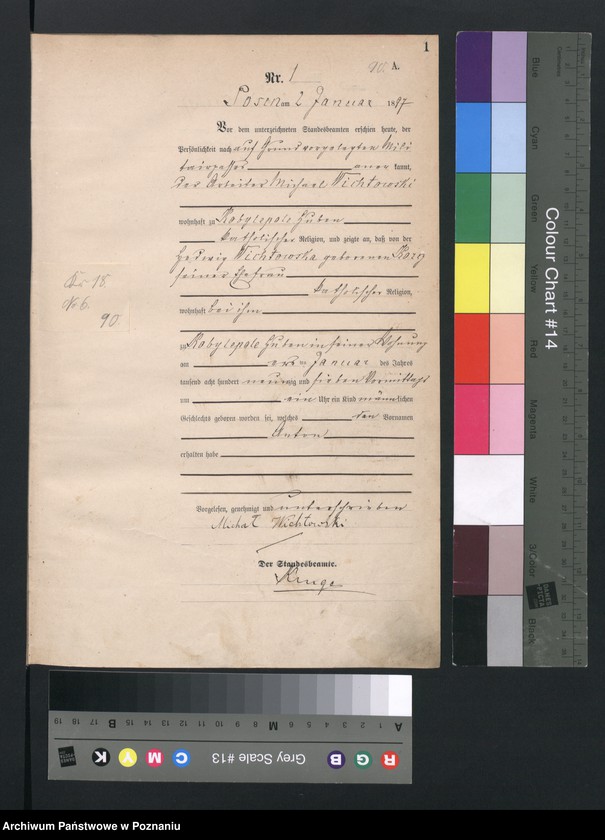 1
90. A.
Nr. 1
Posen am 2 Januar 1897
Vor dem unterzeichneten Standesbeamten erschien heute, der
Persönlichkeit nach auf Grund vorgelegten Mili
tairpasses anerkannt,
der Arbeiter Michael Wichtowski
wohnhaft zu Kobylepole Huben
katholischer Religion, und zeigte an, daß von der
Hedwig Wichtowska geborenen
seiner Ehefrau
katholischer Religion,
wohnhaft bei ihm
zu Kobylepole Huben in seiner Wohnung
am ersten Januar des Jahres
tausend acht hundert neunzig und sieben Vormittags
um ein Uhr ein Kind männlichen
Geschlechts geboren worden sei, welches den Vornamen
Anton
erhalten habe
Vorgelesen, genehmigt und unterschrieben
Michał Wichtowski
Der Standesbeamte.
No 6.
90.
Colour Chart #14
Blue
Cyan
Green
Yellow
Red
Magenta
White
3/Color
Black
Centimetres
DANES
PICTA
Grey Scale #13
R G B C M Y K
A 1 2 3 4 5 6 M 8 9 10 11 12 13 14 15 B 17 18 19
Archiwum Państwowe w Poznaniu